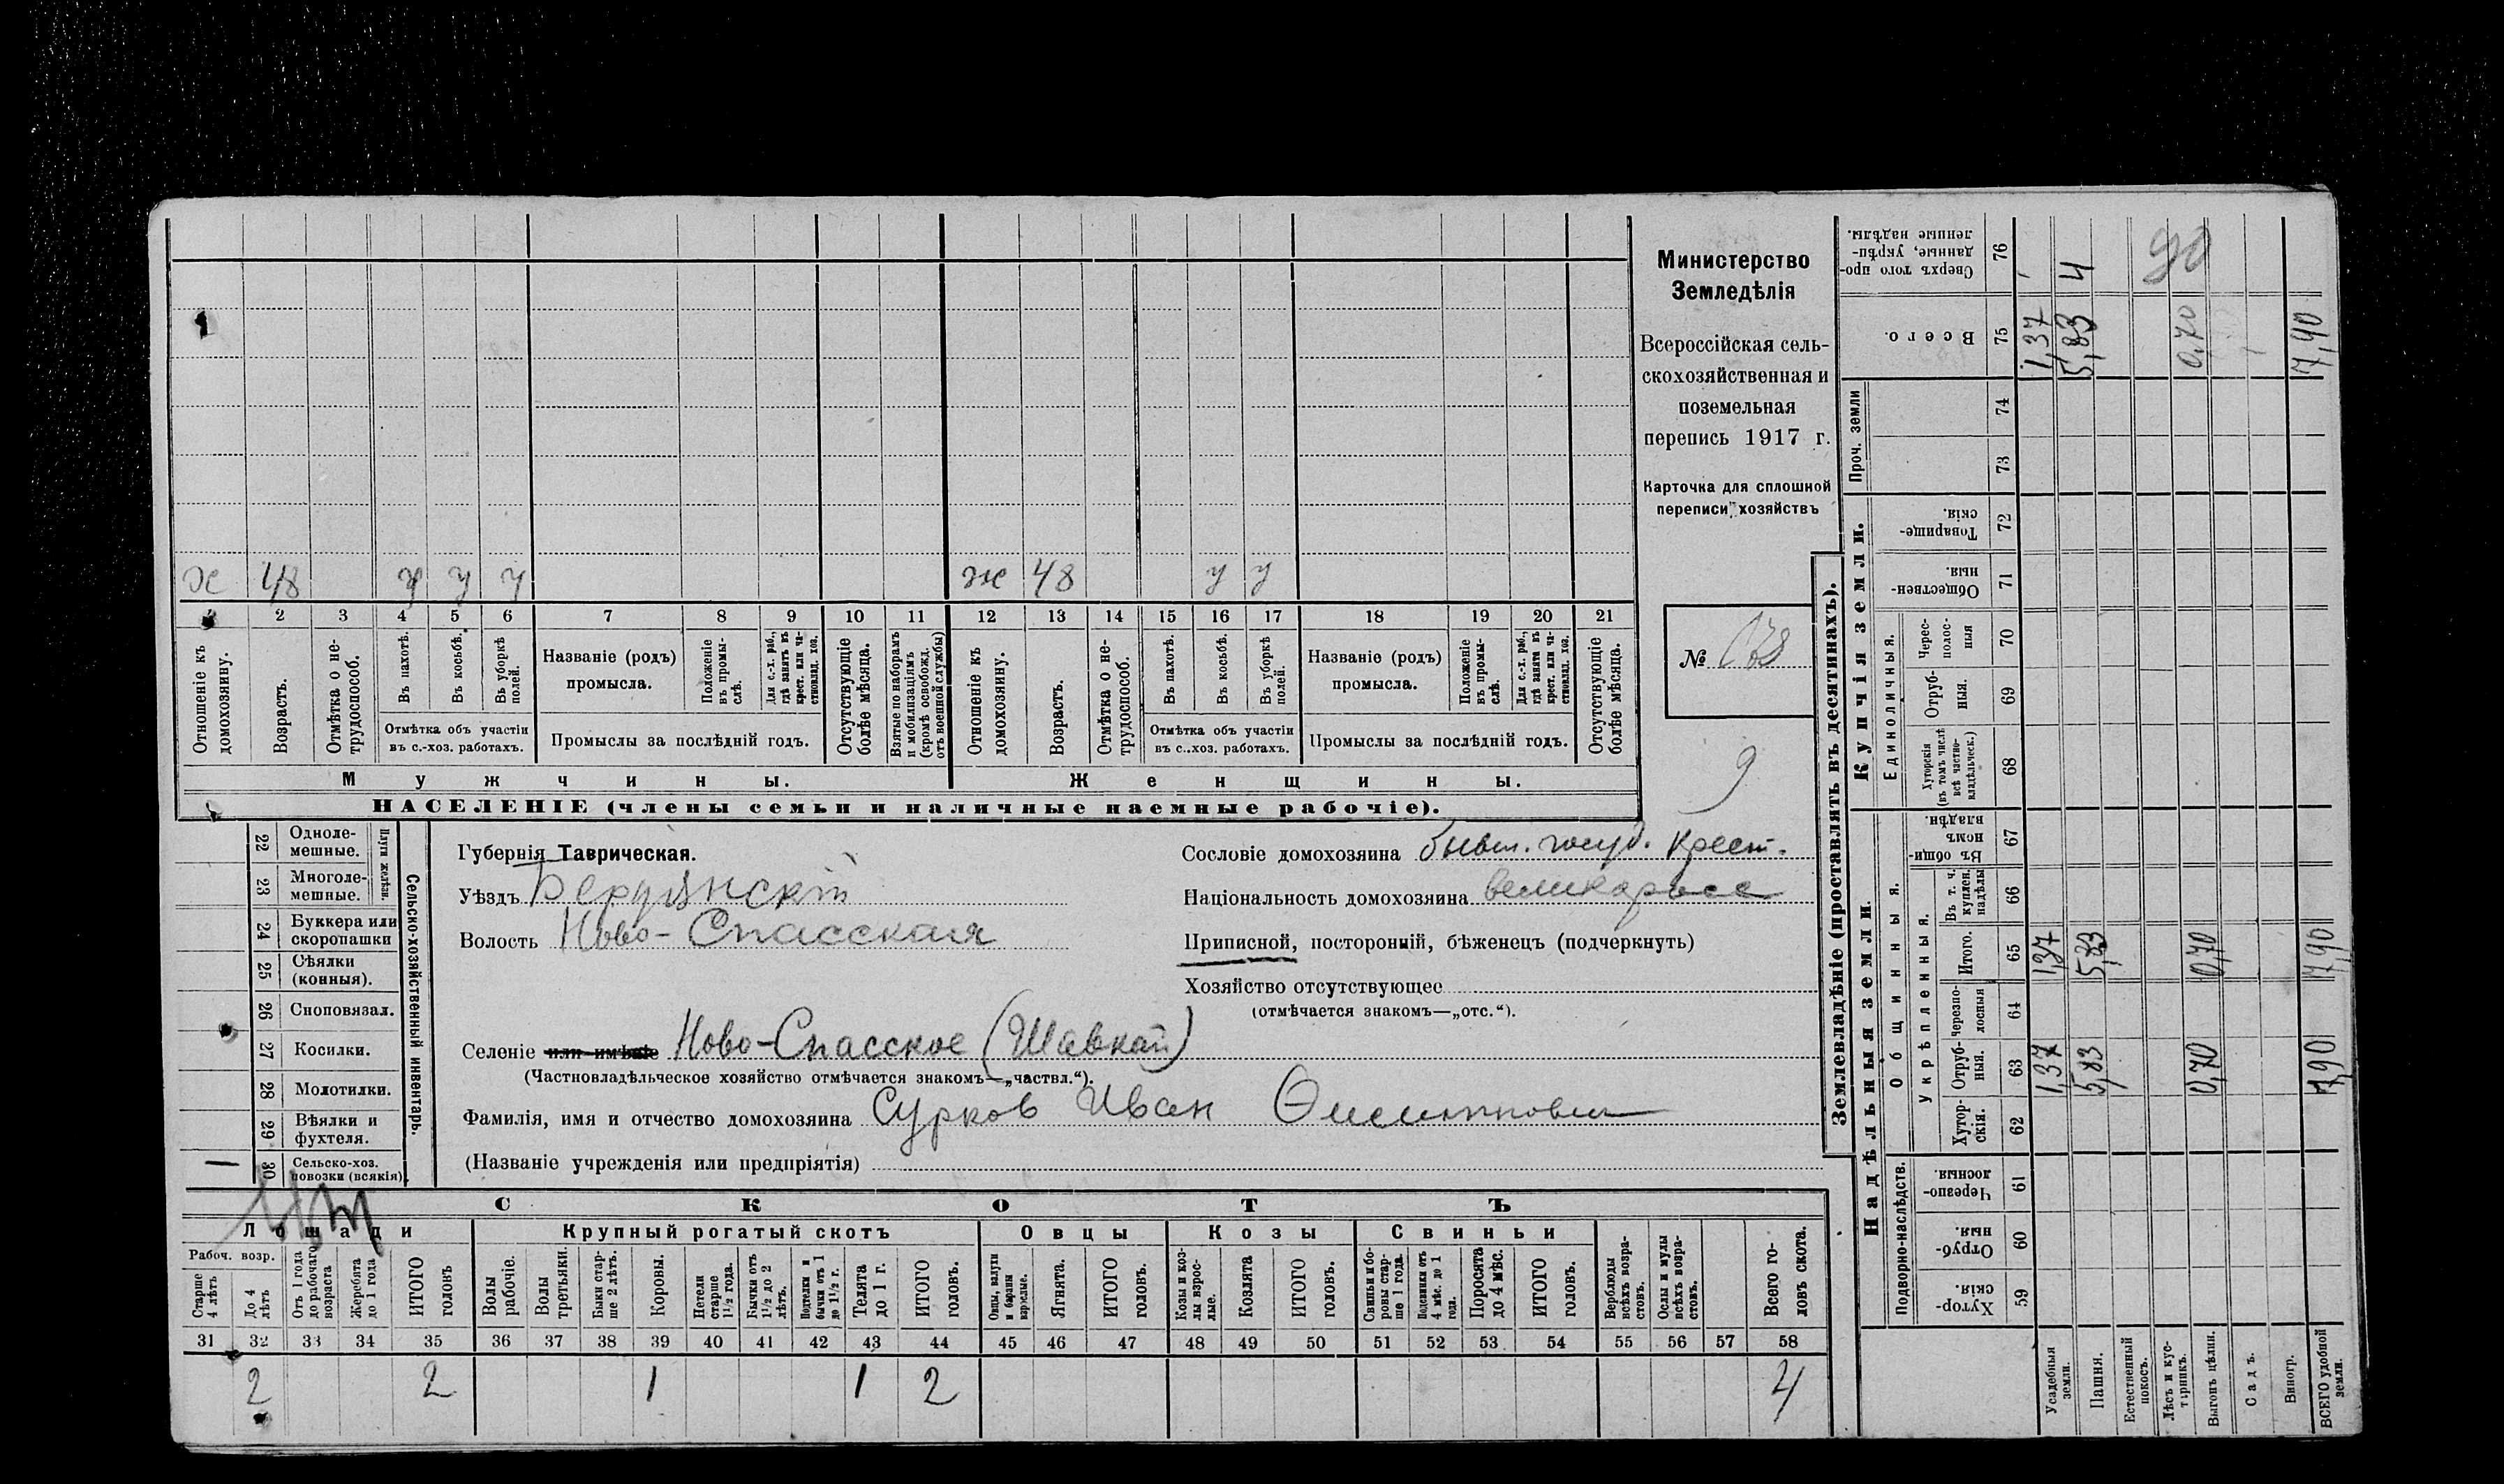 х 48 у у у ж 48 у у
1 2 3 4 5 6 7 8 9 10 11 12 13 14 15 16 17 18 19 20 21
Отношеніе къ домохозяину.
Возрастъ.
Отмѣтка о не-трудоспособ.
Въ пахотѣ.
Въ косьбѣ.
Въ уборкѣ полей.
Отмѣтка объ участіи
въ с.-хоз. работахъ.
Названіе (родъ)
промысла.
Положеніе въ промы-слѣ.
Для с.-х. раб., гдѣ занятъ въ крест. или ча-стновлад. хоз.
Промыслы за послѣдній годъ.
Отсутствующіе болѣе мѣсяца.
Взятые по наборамъ и мобилизаціямъ (кромѣ освобожд. отъ военной службы)
Отношеніе къ домохозяину.
Возрастъ.
Отмѣтка о не-трудоспособ.
Въ пахотѣ.
Въ косьбѣ.
Въ уборкѣ полей.
Отмѣтка объ участіи
въ с..хоз. работахъ.
Названіе (родъ)
промысла.
Положеніе въ промы-слѣ.
Для с.-х. раб., гдѣ занята въ крест. или ча-стновлад. хоз.
Промыслы за послѣдній годъ.
Отсутствующіе болѣе мѣсяца.
Мужчины. Женщины.
НАСЕЛЕНІЕ (члены семьи и наличные наемные рабочіе).
Министерство
Земледѣлія
Всероссійская сель-
скохозяйственная и
поземельная
перепись 1917 г.
Карточка для сплошной
переписи хозяйствъ
№
9
Сельско-хозяйственный инвентарь.
Плуги желѣзн.
22 Одноле-мешные.
23 Многоле-мешные.
24 Буккера или скоропашки
25 Сѣялки (конныя).
26 Сноповязал.
27 Косилки.
28 Молотилки.
29 Вѣялки и фухтеля.
1 30 Сельско-хоз. повозки (всякія).
Губернія Таврическая.
Уѣздъ Бердянскій
Волость Ново-Спасская
Селеніе или имѣніе Ново-Спасское (Шавкай)
(Частновладѣльческое хозяйство отмѣчается знакомъ—„частвл.“).
Фамилія, имя и отчество домохозяина Сурков Иван
(Названіе учрежденія или предпріятія)
Сословіе домохозяина бывш. госуд. крест.
Національность домохозяина великоросс
Приписной, посторонній, бѣженецъ (подчеркнуть)
Хозяйство отсутствующее
(отмѣчается знакомъ—„отс.“).
СКОТЪ
Лошади Крупный рогатый скотъ Овцы Козы Свиньи
Рабоч. возр.
Старше 4 лѣтъ
До 4 лѣтъ
Отъ 1 года до рабочаго возраста
Жеребята до 1 года
ИТОГО головъ
Волы рабочіе.
Волы третьяки.
Быки стар-ше 2 лѣтъ.
Коровы.
Нетели старше 1½ года.
Бычки отъ 1½ до 2 лѣтъ.
Подтелки и бычки отъ 1 до 1½ г.
Телята до 1 г.
ИТОГО головъ.
Овцы, валухи и бараны взрослые.
Ягнята.
ИТОГО головъ.
Козы и коз-лы взрос-лые.
Козлята
ИТОГО головъ.
Свиньи и бо-ровы стар-ше 1 года.
Подсвинки отъ 4 мѣс. до 1 года.
Поросята до 4 мѣс.
ИТОГО головъ.
Верблюды всѣхъ возра-стовъ.
Ослы и мулы всѣхъ возра-стовъ.
Всего го-ловъ скота.
31 32 33 34 35 36 37 38 39 40 41 42 43 44 45 46 47 48 49 50 51 52 53 54 55 56 57 58
2 2 1 1 2 4
Землевладѣніе (проставлять въ десятинахъ).
Надѣльныя земли. Купчія земли. Проч. земли
Подворно-наслѣдств.
Общинныя.
Укрѣпленныя.
Единоличныя.
Хутор-скія. 59
Отруб-ныя. 60
Черезпо-лосныя 61
Хутор-скія. 62
Отруб-ныя. 63
Черезпо-лосныя 64
Итого. 65
Въ т. ч. куплен. надѣлы 66
Въ общин-номъ владѣн. 67
Хуторскія (въ томъ числѣ всѣ частно-владѣльческ.) 68
Отруб-ныя. 69
Черес-полос-ныя 70
Обществен-ныя. 71
Товарище-скія. 72
73
74
Всего. 75
Сверхъ того про-данные, укрѣп-ленные надѣлы. 76
Усадебныя земли. 1,37 1,37 1,37
Пашня. 5,83 5,83 5,83 4
Естественный покосъ.
Лѣсъ и кус-тарникъ.
Выгонъ цѣлин. 0,70 0,70 0,70
Садъ.
Виногр.
ВСЕГО удобной земли. 7,90 7,90 7,90
90